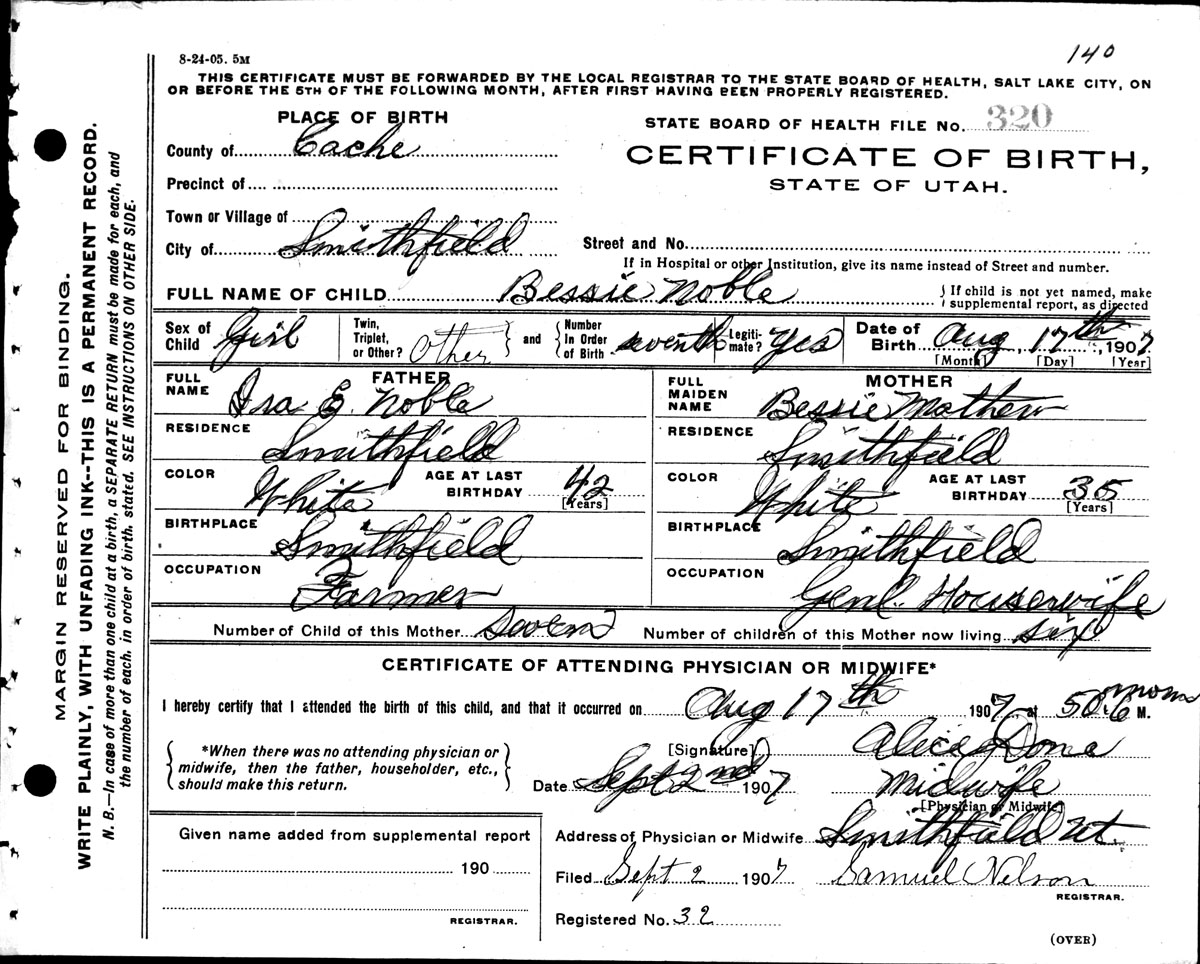 8-24-05. 5M
140
THIS CERTIFICATE MUST BE FORWARDED BY THE LOCAL REGISTRAR TO THE STATE BOARD OF HEALTH, SALT LAKE CITY, ON
OR BEFORE THE 5TH OF THE FOLLOWING MONTH, AFTER FIRST HAVING BEEN PROPERLY REGISTERED.
PLACE OF BIRTH
STATE BOARD OF HEALTH FILE No. 320
County of Cache
CERTIFICATE OF BIRTH,
STATE OF UTAH.
Precinct of
Town or Village of
City of Smithfield
Street and No.
If in Hospital or other Institution, give its name instead of Street and number.
FULL NAME OF CHILD Bessie Noble
{ If child is not yet named, make
supplemental report, as directed
Sex of Child Girl
Twin, Triplet, or Other? Other
and { Number In Order of Birth seventh
Legiti-mate? Yes
Date of Birth Aug 17th, 1907
[Month] [Day] [Year]
FATHER
FULL NAME Isa E. Noble
MOTHER
FULL MAIDEN NAME Bessie Mathew
RESIDENCE Smithfield
RESIDENCE Smithfield
COLOR White AGE AT LAST BIRTHDAY 42 [Years]
COLOR White AGE AT LAST BIRTHDAY 35 [Years]
BIRTHPLACE Smithfield
BIRTHPLACE Smithfield
OCCUPATION Farmer
OCCUPATION Genl. Housewife
Number of Child of this Mother Seven
Number of children of this Mother now living six
CERTIFICATE OF ATTENDING PHYSICIAN OR MIDWIFE*
I hereby certify that I attended the birth of this child, and that it occurred on Aug 17th 1907, at M.
{ *When there was no attending physician or
midwife, then the father, householder, etc.,
should make this return. }
[Signature] Alice Done
Date Sept 2nd 1907
Midwife
[Physician or Midwife]
Given name added from supplemental report
190
REGISTRAR.
Address of Physician or Midwife Smithfield Ut.
Filed Sept 2 1907 Samuel Nelson
REGISTRAR.
Registered No. 32
(OVER)
MARGIN RESERVED FOR BINDING.
WRITE PLAINLY, WITH UNFADING INK--THIS IS A PERMANENT RECORD.
N. B.—In case of more than one child at a birth, a SEPARATE RETURN must be made for each, and
the number of each, in order of birth, stated. SEE INSTRUCTIONS ON OTHER SIDE.